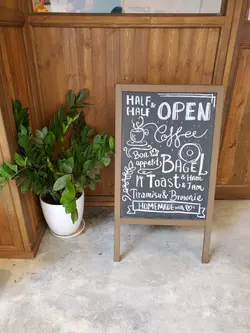 HALF & HALF OPEN
Coffee
Bon appetit
BAGEL
Toast & Ham & Jam
Tiramisu & Brownie
HOMEMADE with